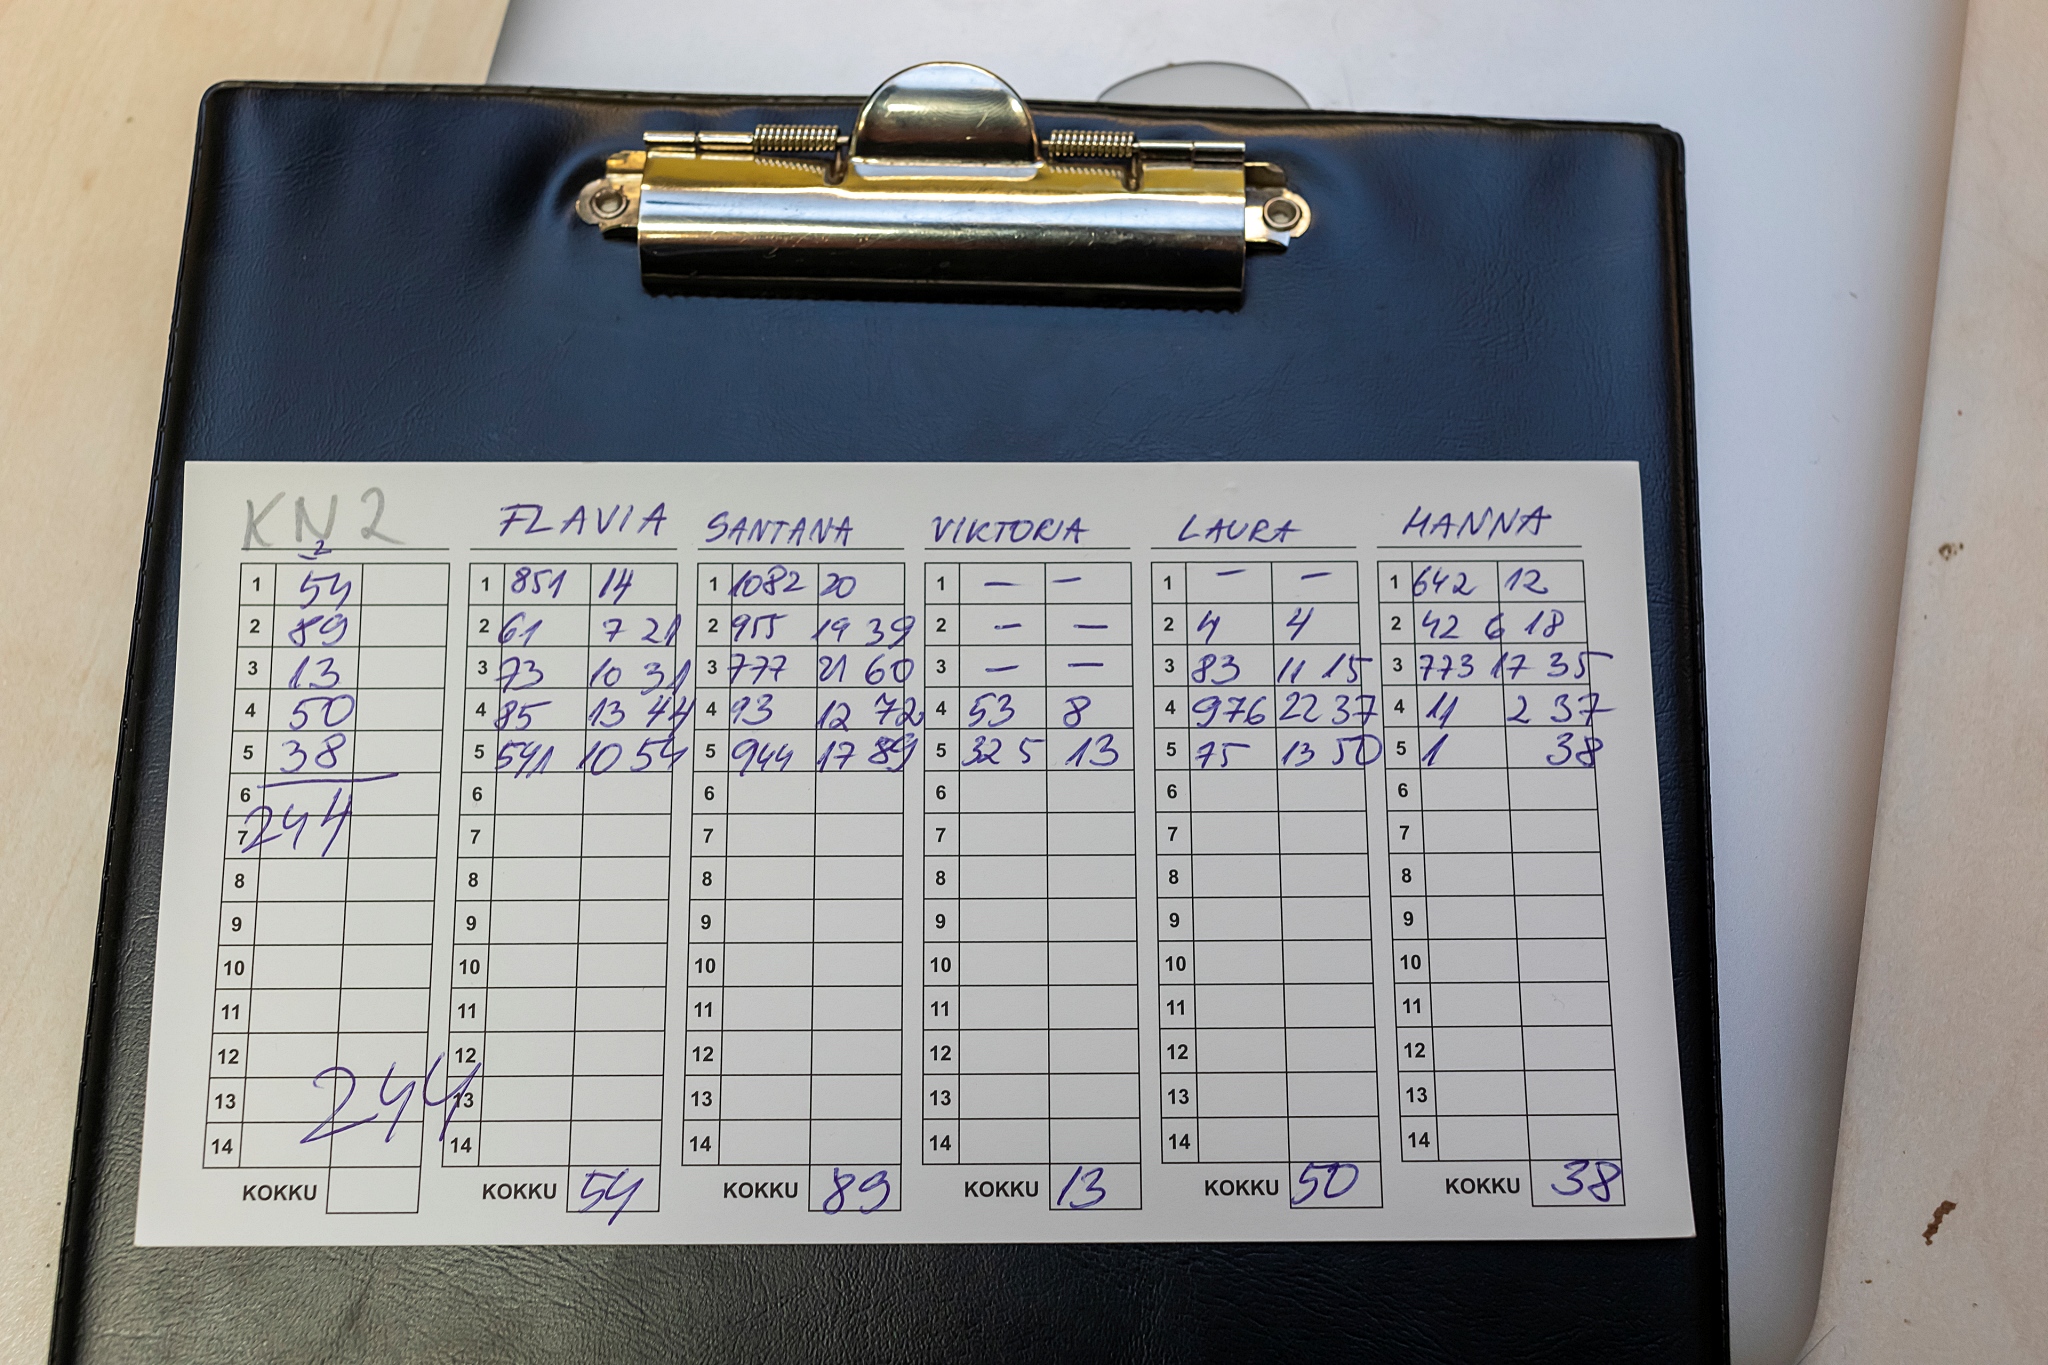 KN2 FLAVIA SANTANA VIKTORIA LAURA HANNA
2
1 54 1 851 14 1 1082 20 1 – – 1 – – 1 642 12
2 89 2 61 7 21 2 955 19 39 2 – – 2 4 4 2 42 6 18
3 13 3 73 10 31 3 777 21 60 3 – – 3 83 11 15 3 773 17 35
4 50 4 85 13 44 4 93 12 72 4 53 8 4 976 22 37 4 11 2 37
5 38 5 541 10 54 5 944 17 89 5 32 5 13 5 75 13 50 5 1 38
6 6 6 6 6 6
7 244 7 7 7 7 7
8 8 8 8 8 8
9 9 9 9 9 9
10 10 10 10 10 10
11 11 11 11 11 11
12 12 12 12 12 12
13 244 13 13 13 13 13
14 14 14 14 14 14
KOKKU KOKKU 54 KOKKU 89 KOKKU 13 KOKKU 50 KOKKU 38